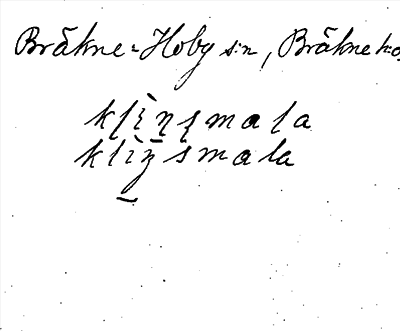 Bräkne-Hoby s:n, Bräkne hd,
klìnsmala
klìnsmala